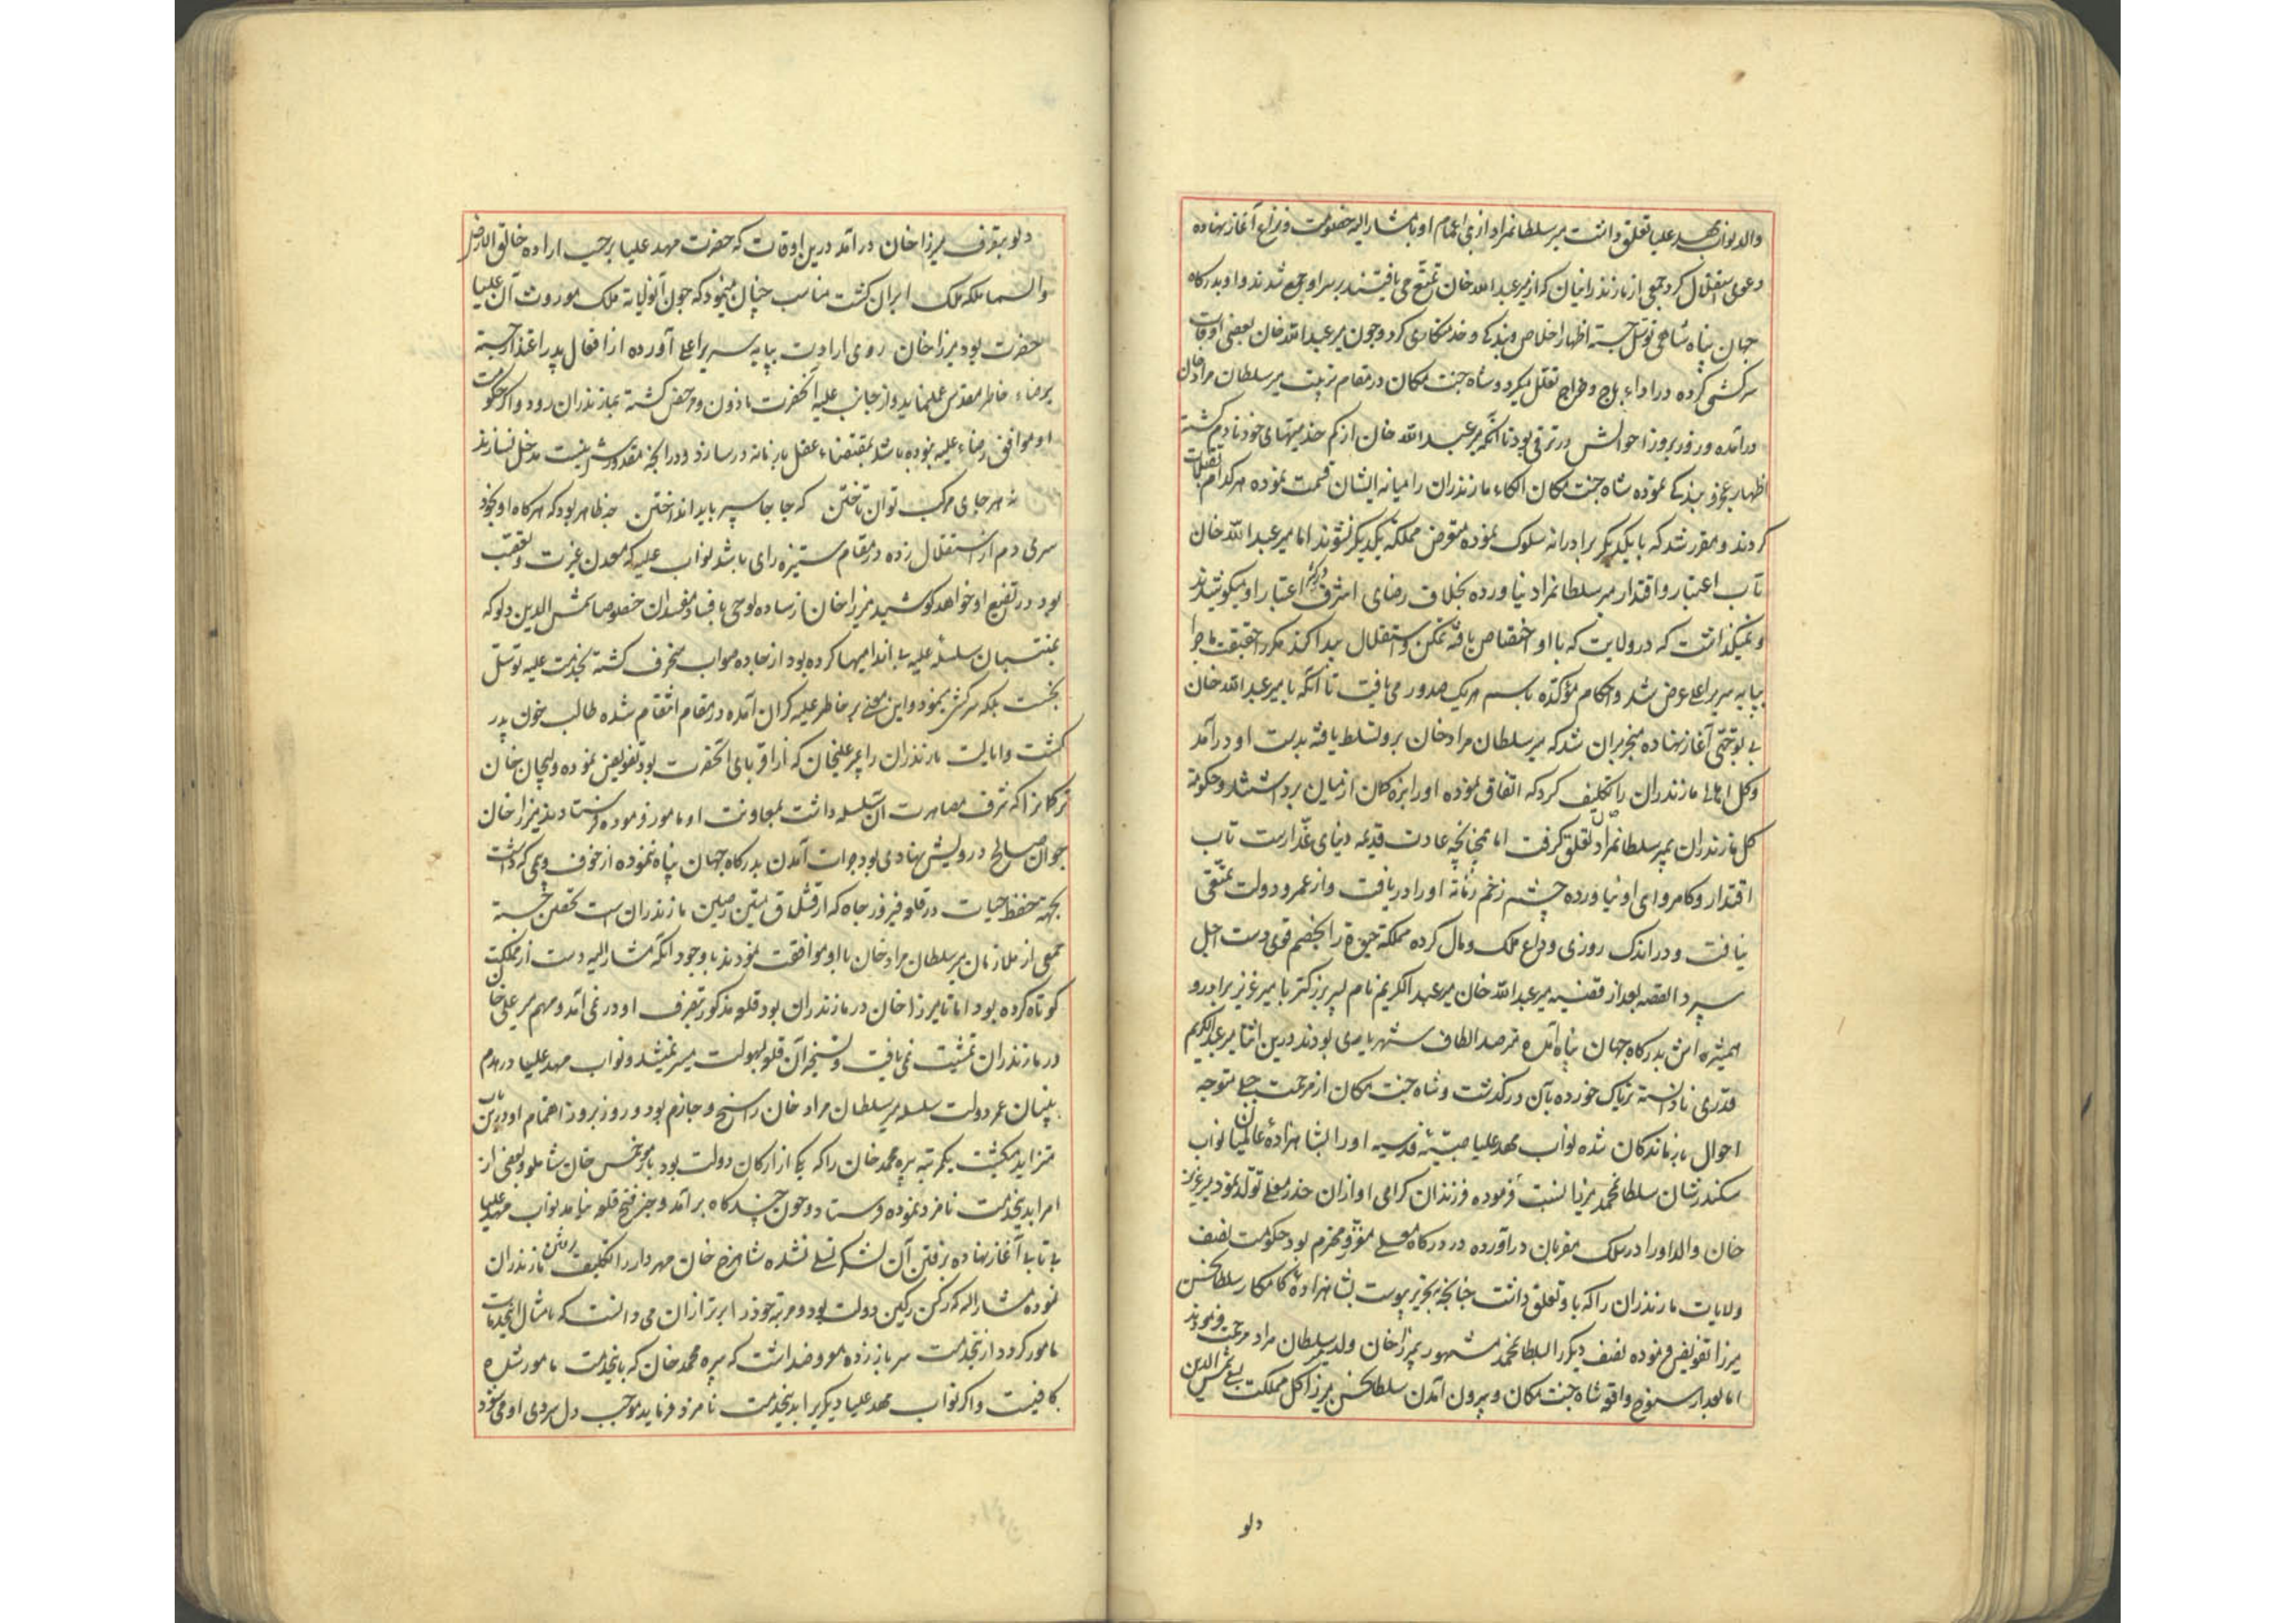 والد نواب مهد علیا تعلق داشت میر سلطانمراد از بنی اعمام او با مشارالیه خصومت و نزاع آغاز نهاده
دعوی استقلال کرد جمعی از مازندرانیان که از میر عبد الله خان تمتع می یافتند بر سر او جمع شدند و او بدرکاه
جهان پناه شاهی توسل جسته اظهار اخلاص و بندکی و خدمتکاری کرد و جون میر عبد الله خان بعضی اوقات
سرکشی کرده در اداء باج و خراج تعلل میکرد و شاه جنت مکان در مقام تربیت میر سلطان مراد خان
درآمده و روز بروز احوالش در ترقی بود تا آنکه میر عبد الله خان از کم خدمتیهای خود نادم کشته
اظهار عجز و بندکی نموده شاه جنت مکان الکاء مازندران را میانه ایشان قسمت نموده هر کدام تقبلات
کردند و مقرر شد که با یکدیکر برادرانه سلوک نموده متعرض مملکة یکدیکر نشوند اما میر عبد الله خان
تاب اعتبار و اقتدار میر سلطانمراد نیاورده بخلاف رضای اشرف در کسر اعتبار او میکوشیدند
و نمیکذاشت که در ولایت که باو اختصاص یافته تمکن و استقلال پیدا کند مکرر حقیقت ماجرا
بپایه سریر اعلی عرض شد و احکام مؤکده باسم هر یک صدور می یافت تا آنکه با میر عبد الله خان
بی توجهی آغاز نهاده منجر بان شد که میر سلطان مراد خان برو تسلط یافته بدست او درآمد
و کل اهالی مازندران را تکلیف کرد که اتفاق نموده او را بزه کمان از میان برداشتند و حکومة
کل مازندران بمیر سلطانمراد خان تعلق کرفت اما همجنانچه عادت قدیمه دنیای غدارست تاب
اقتدار و کامروای او نیاورده چشم زخم زمانه او را دریافت و از عمر و دولت تمتعی
نیافت و در اندک روزی وداع ملک و مال کرده مملکة حیوة را بخصم قوی دست اجل
سپرد القصه بعد از قضیه میر عبد الله خان میر عبد الکریم نام پسر بزرکتر با میر عزیز برادر و
همشیره اش بدرکاه جهان پناه آمده مترصد الطاف شهریاری بودند درین اثنا میر عبد الکریم
قدری نادانسته تریاک خورده بآن درکذشت و شاه جنت مکان از مرحمت جبلی متوجه
احوال بازماندکان شده نواب مهد علیا صبیه قدسیه او را بشاهزاده عالمیان نواب
سکندرشان سلطانمحمد میرزا نسبت فرموده فرزندان کرامی او ازان خدر معلی تولد نمود میر عزیز
خان والد او را در سلک مقربان درآورده در درکاه معلی معزز و محترم بود حکومت نصف
ولایات مازندران را که باو تعلق داشت جنانجه بتحریر پیوست بشاهزاده کامکار سلطانحسن
میرزا تفویض فرموده نصف دیکر را بسلطانمحمد مشهور بمیرزا خان ولد میر سلطان مراد مرحمت فرمودند
اما بعد از سنوح واقعه شاه جنت مکان و بیرون آمدن سلطانحسن میرزا کل مملکت بسعی شمس الدین
دلو
دلو بتصرف میرزا خان درآمد درین اوقات که حضرت مهد علیا برحسب اراده خالق الارض
والسما ملکه ملک ایران کشت مناسب چنان مینمود که جون آنولایة ملک موروث آن علیا
حضرت بود میرزا خان روی ارادت بپایه سریر اعلی آورده از افعال پدر اعتذار جسته
برضاء خاطر مقدس عمل نماید و از جانب علیه آنحضرت ماذون و مرخص کشته بمازندران رود و اکر حکومت
او موافق رضاء علیه نبوده باشد بمقتضاء عقل با زمانه درسازد و در انچه مقدورش نیست مدخل نسازند
نه هر جای مرکب توان تاختن که جا جا سپر باید انداختن چه ظاهر بود که هرکاه او بخود
سری دم از استقلال زده در مقام ستیزه رای باشد نواب علیه که معدن غیرت و تعصب
بود در تضییع او خواهد کوشید میرزا خان از ساده لوحی با فساد مفسدان خصوصا شمس الدین دلو که
بمنتسبان سلسله علیه بی اندامیها کرده بود از جاده صواب منحرف کشته بخدمت علیه توسل
نجست بلکه سرکشی نمود و این معنی بر خاطر علیه کران آمده در مقام انتقام شده طالب خون پدر
کشت و ایالت مازندران را بمیر علیخان که از اقربای آنحضرت بود تفویض نموده ولیجان خان
ترکمانرا که شرف مصاهرت ان سلسله داشت بمعاونت او مامور فرموده فرستادند میرزا خان
جوان صالح درویش نهادی بود جرات آمدن بدرکاه جهان پناه ننموده از خوف و بیمی که داشت
بجهة حفظ حیات در قلعه فیروز جاه که از قلاع متین رصین مازندران است تحصن جسته
جمعی از ملازمان میر سلطان مراد خان با او موافقت نمودند با وجود آنکه مشارالیه دست از مملکت
کوتاه کرده بود اما تا میرزا خان در مازندران بود قلعه مذکور بتصرف او در نمی آمد و مهم میر علی خان
در مازندران تمشیت نمی یافت و تسخیر آن قلعه بسهولت میسر نمیشد و نواب مهد علیا در هدم
بنیان عمر دولت سلسله میر سلطان مراد خان راسخ و جازم بود و روز بروز اهتمام او درین باب
متزاید میکشت یکمرتبه پیره محمد خان را که یکی از ارکان دولت بود با خان شاملو و بعضی از
امرا بدینخدمت نامزد نموده فرستاد و جون چند کاه برآمد و خبر فتح قلعه نیامد نواب مهد علیا
بی تابی آغاز نهاده برفتن آن لشکر تسلی نشده شاهرخ خان مهردار را تکلیف رفتن مازندران
نموده مشارالیه که رکن رکین دولت بود و مرتبه خود را برتر ازان می دانست که بامثال اینخدمات
مامور کردد ازینخدمت سر باز زده معروضداشت که پیره محمد خان که باینخدمت مامور شده
کافیست و اکر نواب مهد علیا دیکریرا بدینخدمت نامزد فرماید موجب دل سردی او می شود